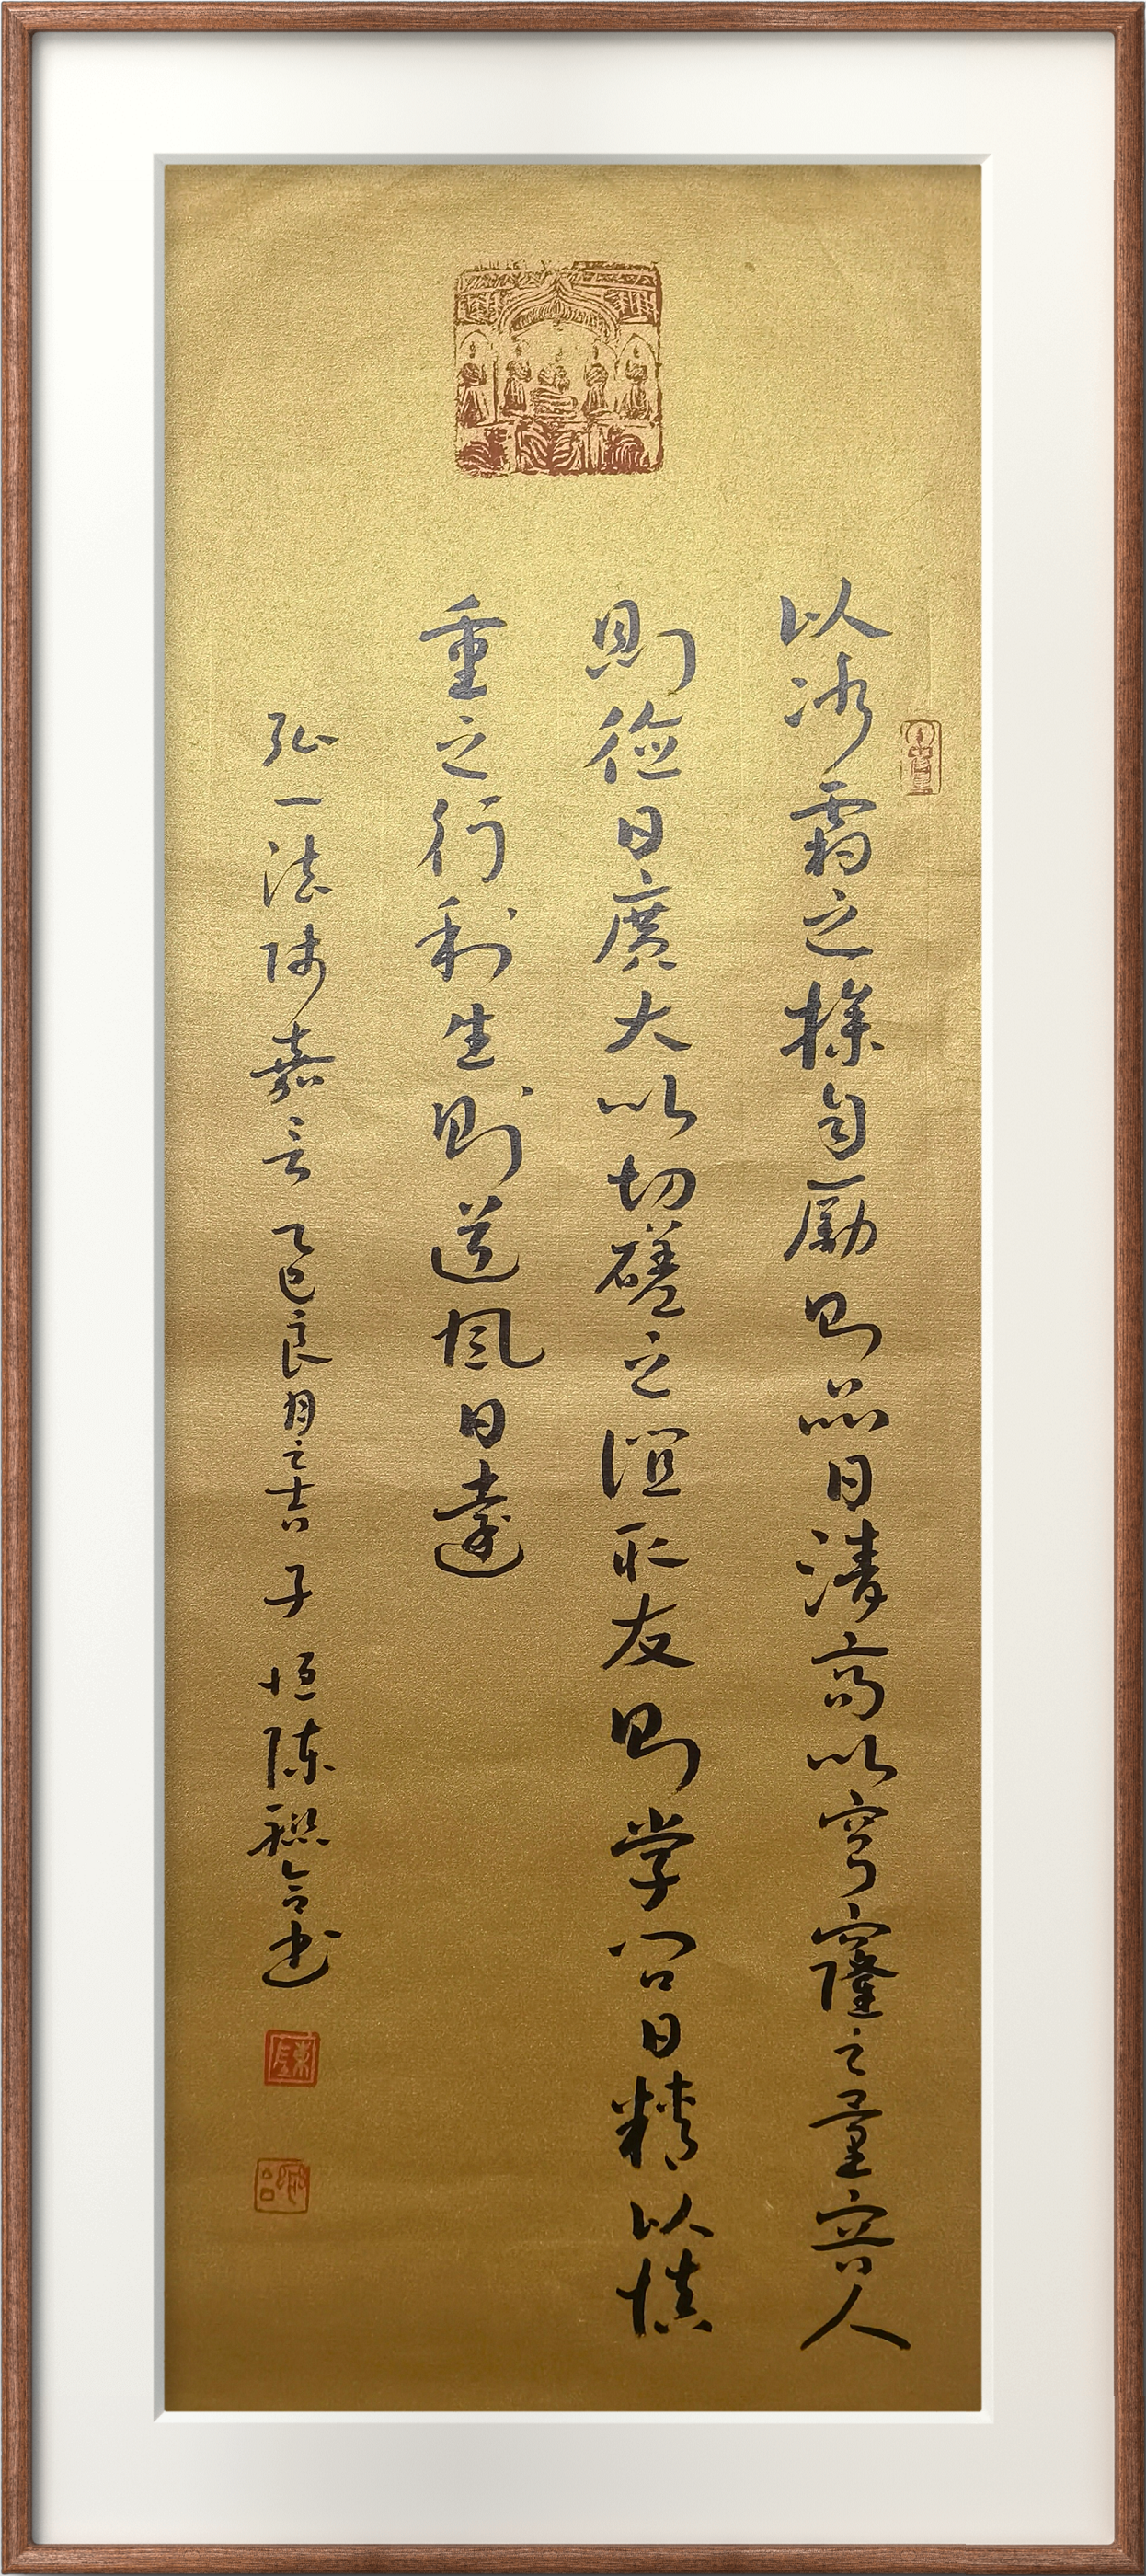 以冰霜之操自励则品日清高以穹窿之量容人
则德日广大以切磋之谊取友则学问日精以慎
重之行利生则道风日远
弘一法师嘉言 乙巳良月之吉 子恒陈联合书